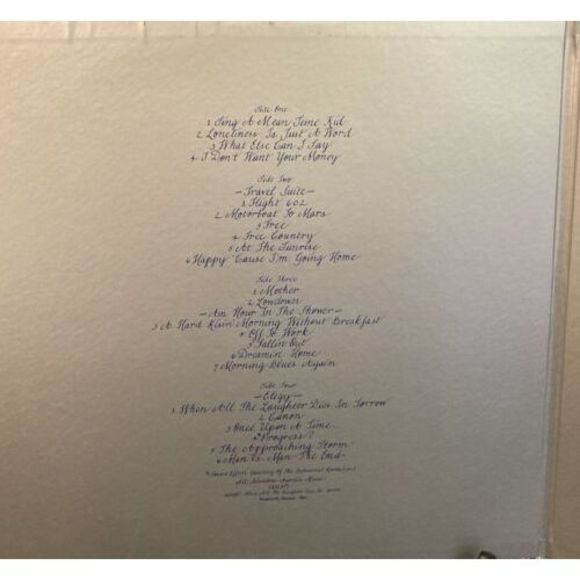 Side One
1 Sing A Mean Tune Kid
2 Loneliness Is Just A Word
3 What Else Can I Say
4 I Don't Want Your Money
Side Two
—Travel Suite—
1 Flight 602
2 Motorboat To Mars
3 Free
4 Free Country
5 At The Sunrise
6 Happy 'Cause I'm Going Home
Side Three
1 Mother
2 Lowdown
—An Hour In The Shower—
3 A Hard Risin' Morning Without Breakfast
4 Off To Work
5 Fallin Out
6 Dreamin Home
7 Morning Blues Again
Side Four
—Elegy—
1 When All The Laughter Dies In Sorrow
2 Canon
3 Once Upon A Time...
4 *Progress?
5 The Approaching Storm
6 Man vs. Man The End
All Selections